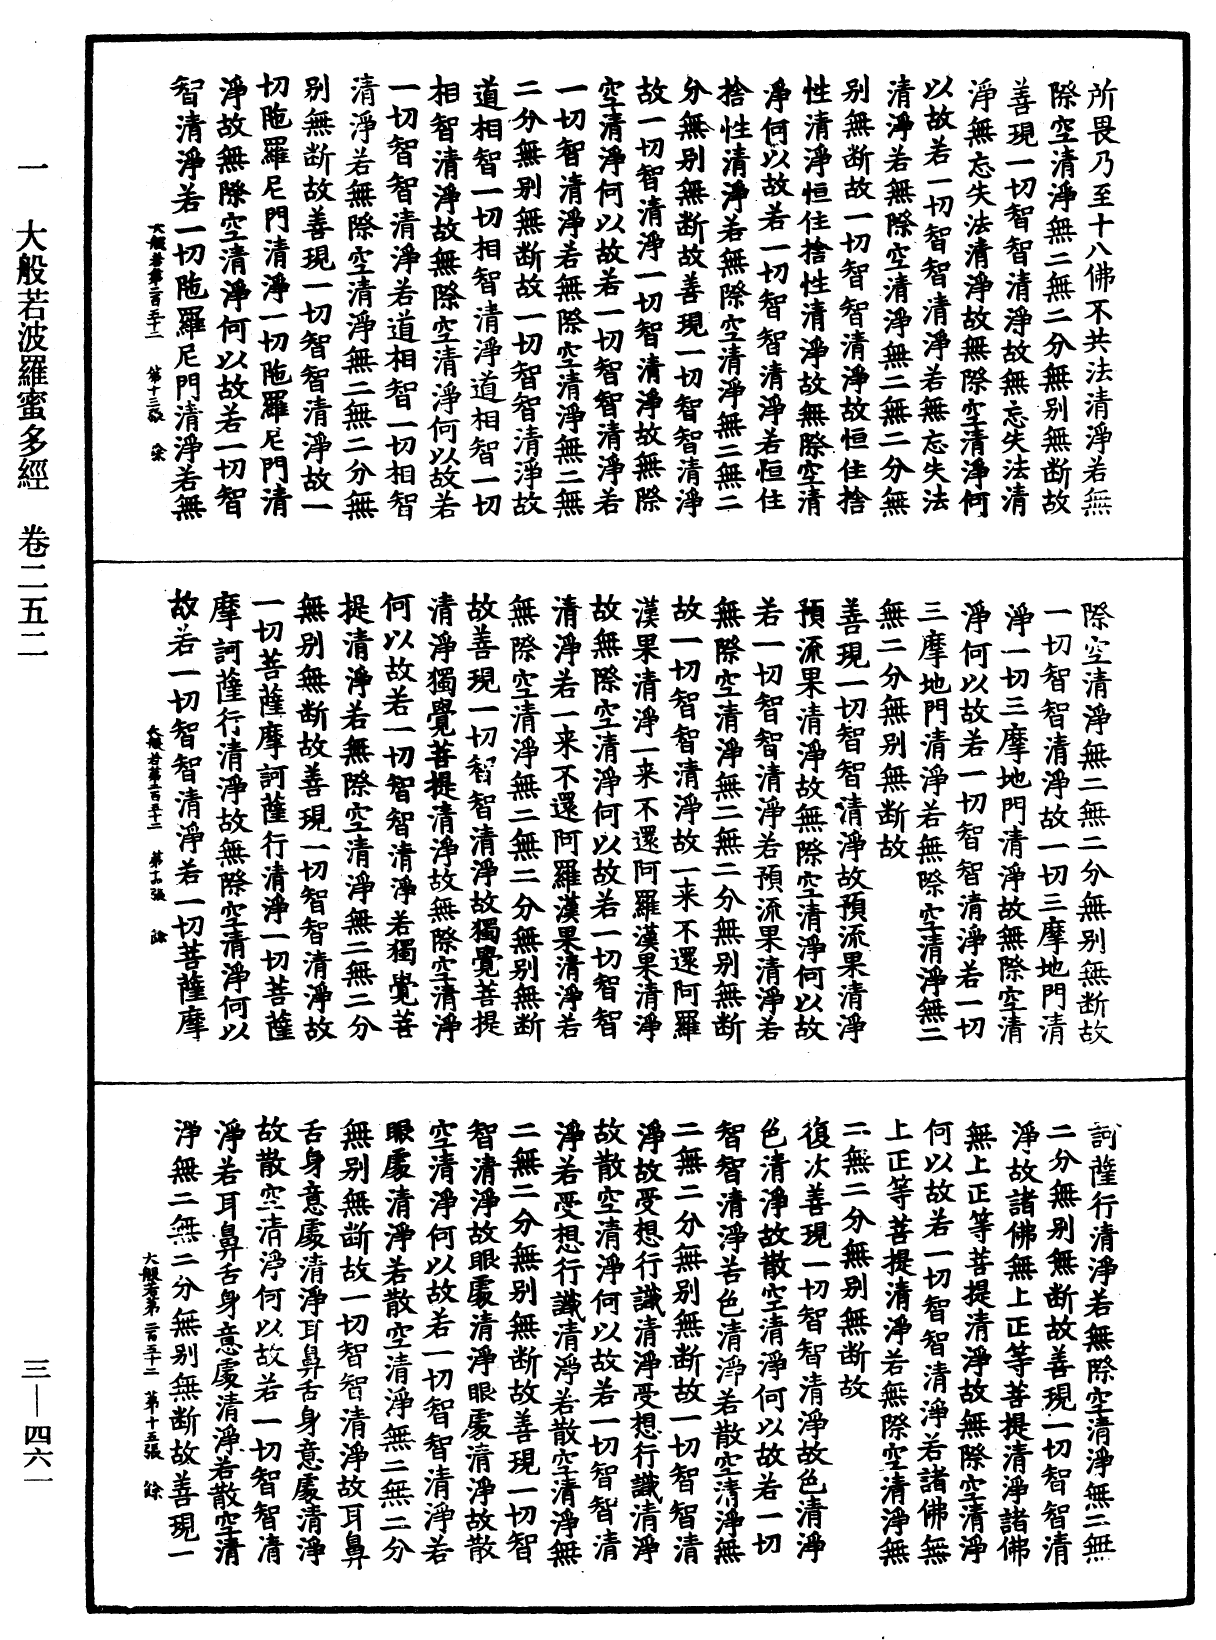 所畏乃至十八佛不共法清淨若無
際空清淨無二無二分無别無断故
善現一切智智清淨故無忘失法清
淨無忘失法清淨故無際空清淨何
以故若一切智智清淨若無忘失法
清淨若無際空清淨無二無二分無
别無断故一切智智清淨故恒住捨
性清淨恒住捨性清淨故無際空清
淨何以故若一切智智清淨若恒住
捨性清淨若無際空清淨無二無二
分無别無断故善現一切智智清淨
故一切智清淨一切智清淨故無際
空清淨何以故若一切智智清淨若
一切智清淨若無際空清淨無二無
二分無别無断故一切智智清淨故
道相智一切相智清淨道相智一切
相智清淨故無際空清淨何以故若
一切智智清淨若道相智一切相智
清淨若無際空清淨無二無二分無
别無断故善現一切智智清淨故一
切陁羅尼門清淨一切陁羅尼門清
淨故無際空清淨何以故若一切智
智清淨若一切陁羅尼門清淨若無
大般若第二百五十二 第十三張 余
際空清淨無二無二分無别無断故
一切智智清淨故一切三摩地門清
淨一切三摩地門清淨故無際空清
淨何以故若一切智智清淨若一切
三摩地門清淨若無際空清淨無二
無二分無别無断故
善現一切智智清淨故預流果清淨
預流果清淨故無際空清淨何以故
若一切智智清淨若預流果清淨若
無際空清淨無二無二分無别無断
故一切智智清淨故一来不還阿羅
漢果清淨一来不還阿羅漢果清淨
故無際空清淨何以故若一切智智
清淨若一来不還阿羅漢果清淨若
無際空清淨無二無二分無别無断
故善現一切智智清淨故獨覺菩提
清淨獨覺菩提清淨故無際空清淨
何以故若一切智智清淨若獨覺菩
提清淨若無際空清淨無二無二分
無别無断故善現一切智智清淨故
一切菩薩摩訶薩行清淨一切菩薩
摩訶薩行清淨故無際空清淨何以
故若一切智智清淨若一切菩薩摩
大般若第二百五十二 第十四張 餘
訶薩行清淨若無際空清淨無二無
二分無别無断故善現一切智智清
淨故諸佛無上正等菩提清淨諸佛
無上正等菩提清淨故無際空清淨
何以故若一切智智清淨若諸佛無
上正等菩提清淨若無際空清淨無
二無二分無别無断故
復次善現一切智智清淨故色清淨
色清淨故散空清淨何以故若一切
智智清淨若色清淨若散空清淨無
二無二分無别無断故一切智智清
淨故受想行識清淨受想行識清淨
故散空清淨何以故若一切智智清
淨若受想行識清淨若散空清淨無
二無二分無别無断故善現一切智
智清淨故眼處清淨眼處清淨故散
空清淨何以故若一切智智清淨若
眼處清淨若散空清淨無二無二分
無别無断故一切智智清淨故耳鼻
舌身意處清淨耳鼻舌身意處清淨
故散空清淨何以故若一切智智清
淨若耳鼻舌身意處清淨若散空清
淨無二無二分無别無断故善現一
大般若第二百五十二 第十五張 餘
一 大般若波羅蜜多經 卷二五二
三—四六一